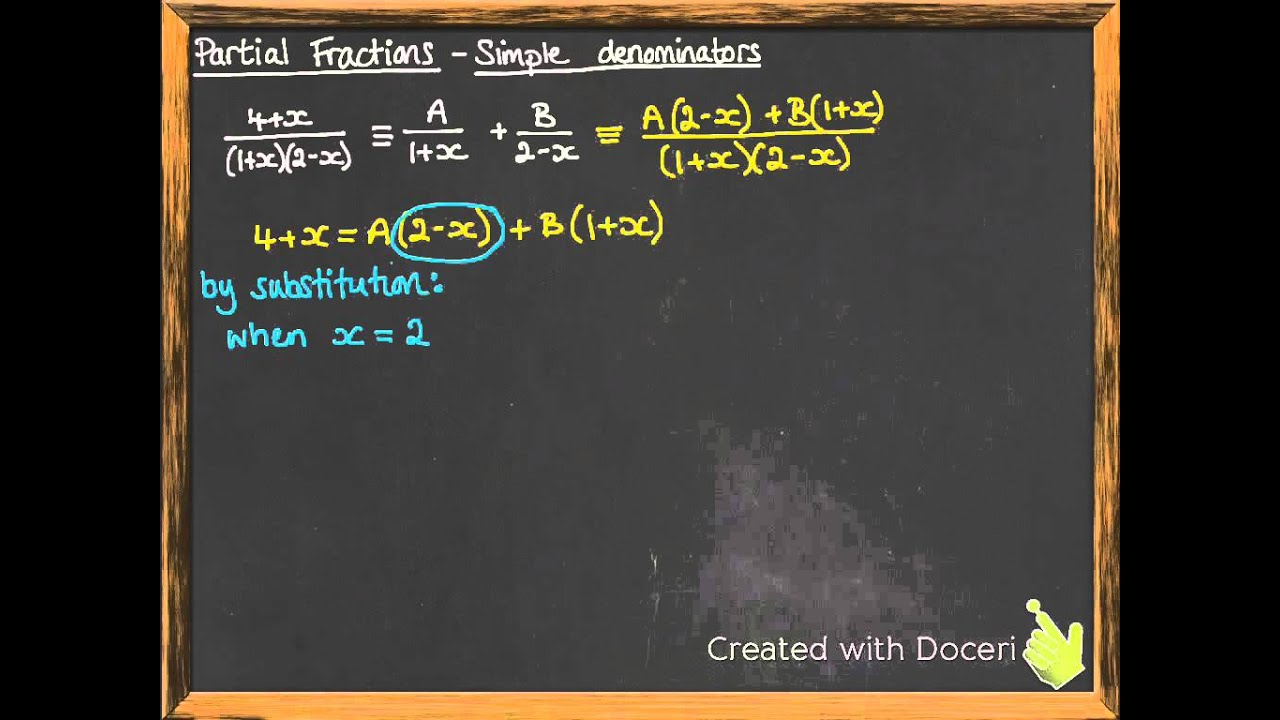 Partial Fractions - Simple denominators
4+x/(1+x)(2-x) ≡ A/1+x + B/2-x ≡ A(2-x) + B(1+x)/(1+x)(2-x)
4+x = A(2-x) + B(1+x)
by substitution:
when x = 2
Created with Doceri